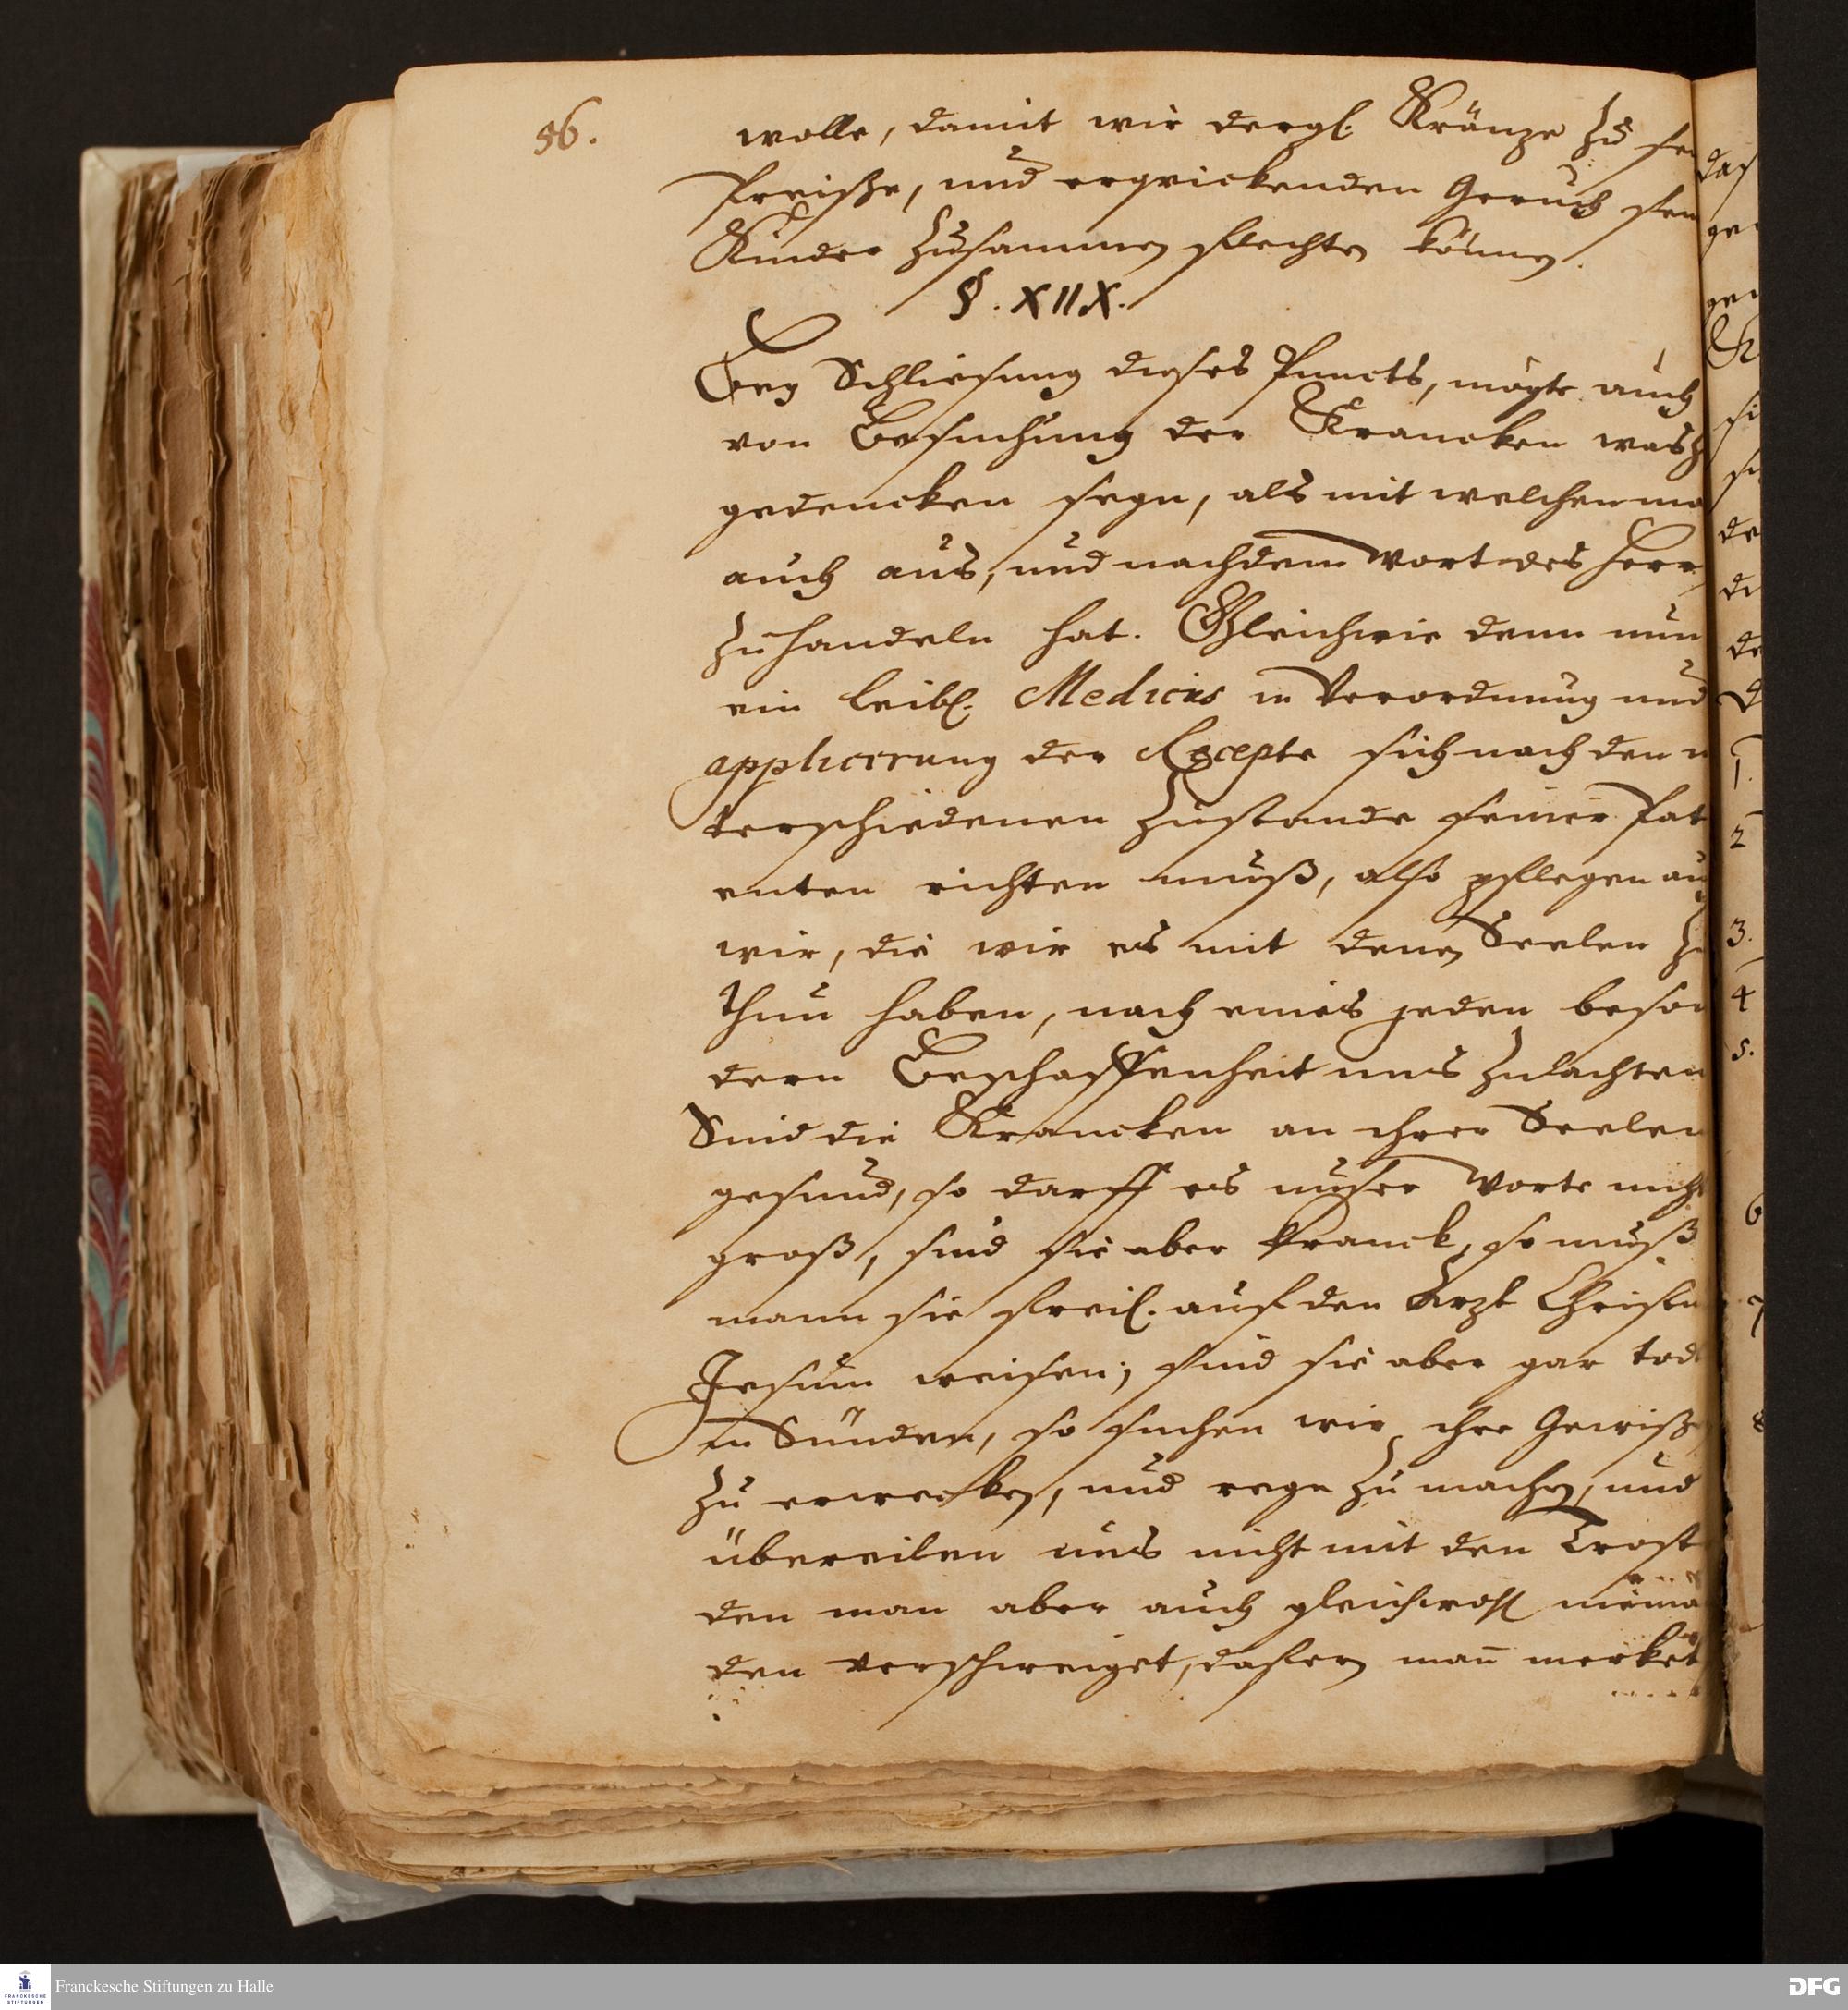 56.
wolle, damit wir dergl. Kräntze zu
Preiße, und erqvickenden Geruch
Kinder zusammen flechten können.
§. XIIX.
Bey Schliesung dieses Puncts, mögte auch
von Besuchung der Krancken was
gedencken seyn, als mit welchen
auch aus, und nach dem Wort des Herr
zu handeln hat. Gleichwie denn nun
ein leibl. Medicus in Verordnung und
applicirung der Recepte sich nach den
terschiedenen Zustande seiner Pat
enten richten muß, also pflegen
wir, die wir es mit denen Seelen
thun haben, nach eines jeden beson
dern Beschaffenheit uns zu achten
Sind die Krancken an ihrer Seelen
gesund, so darff es unser Worte nicht
groß, sind sie aber kranck, so muß
mann sie freil. auf den Arzt Christum
Jesum weisen; sind sie aber gar todt
in Sünden, so suchen wir ihre Gewißen
zu erwecken, und rege zu machen, und
übereilen uns nicht mit den Trost
den man aber auch gleichwohl niema
den verschweiget, dafern man̄ merket
das
1.
2
3.
4
5.
6
7
8
Franckesche Stiftungen zu Halle
FRANCKESCHE
STIFTUNGEN
DFG